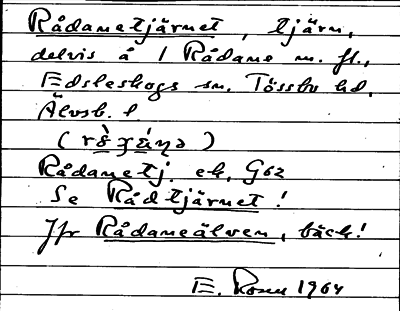 Rådanetjärnet, tjärn,
delvis å 1 Rådane m. fl.,
Edsleskogs sn. Tössbo hd,
Älvsb. l
Rådanetj. ek. G62
Se Rådtjärnet!
Jfr Rådaneälven, bäck!
E. Rosen 1964